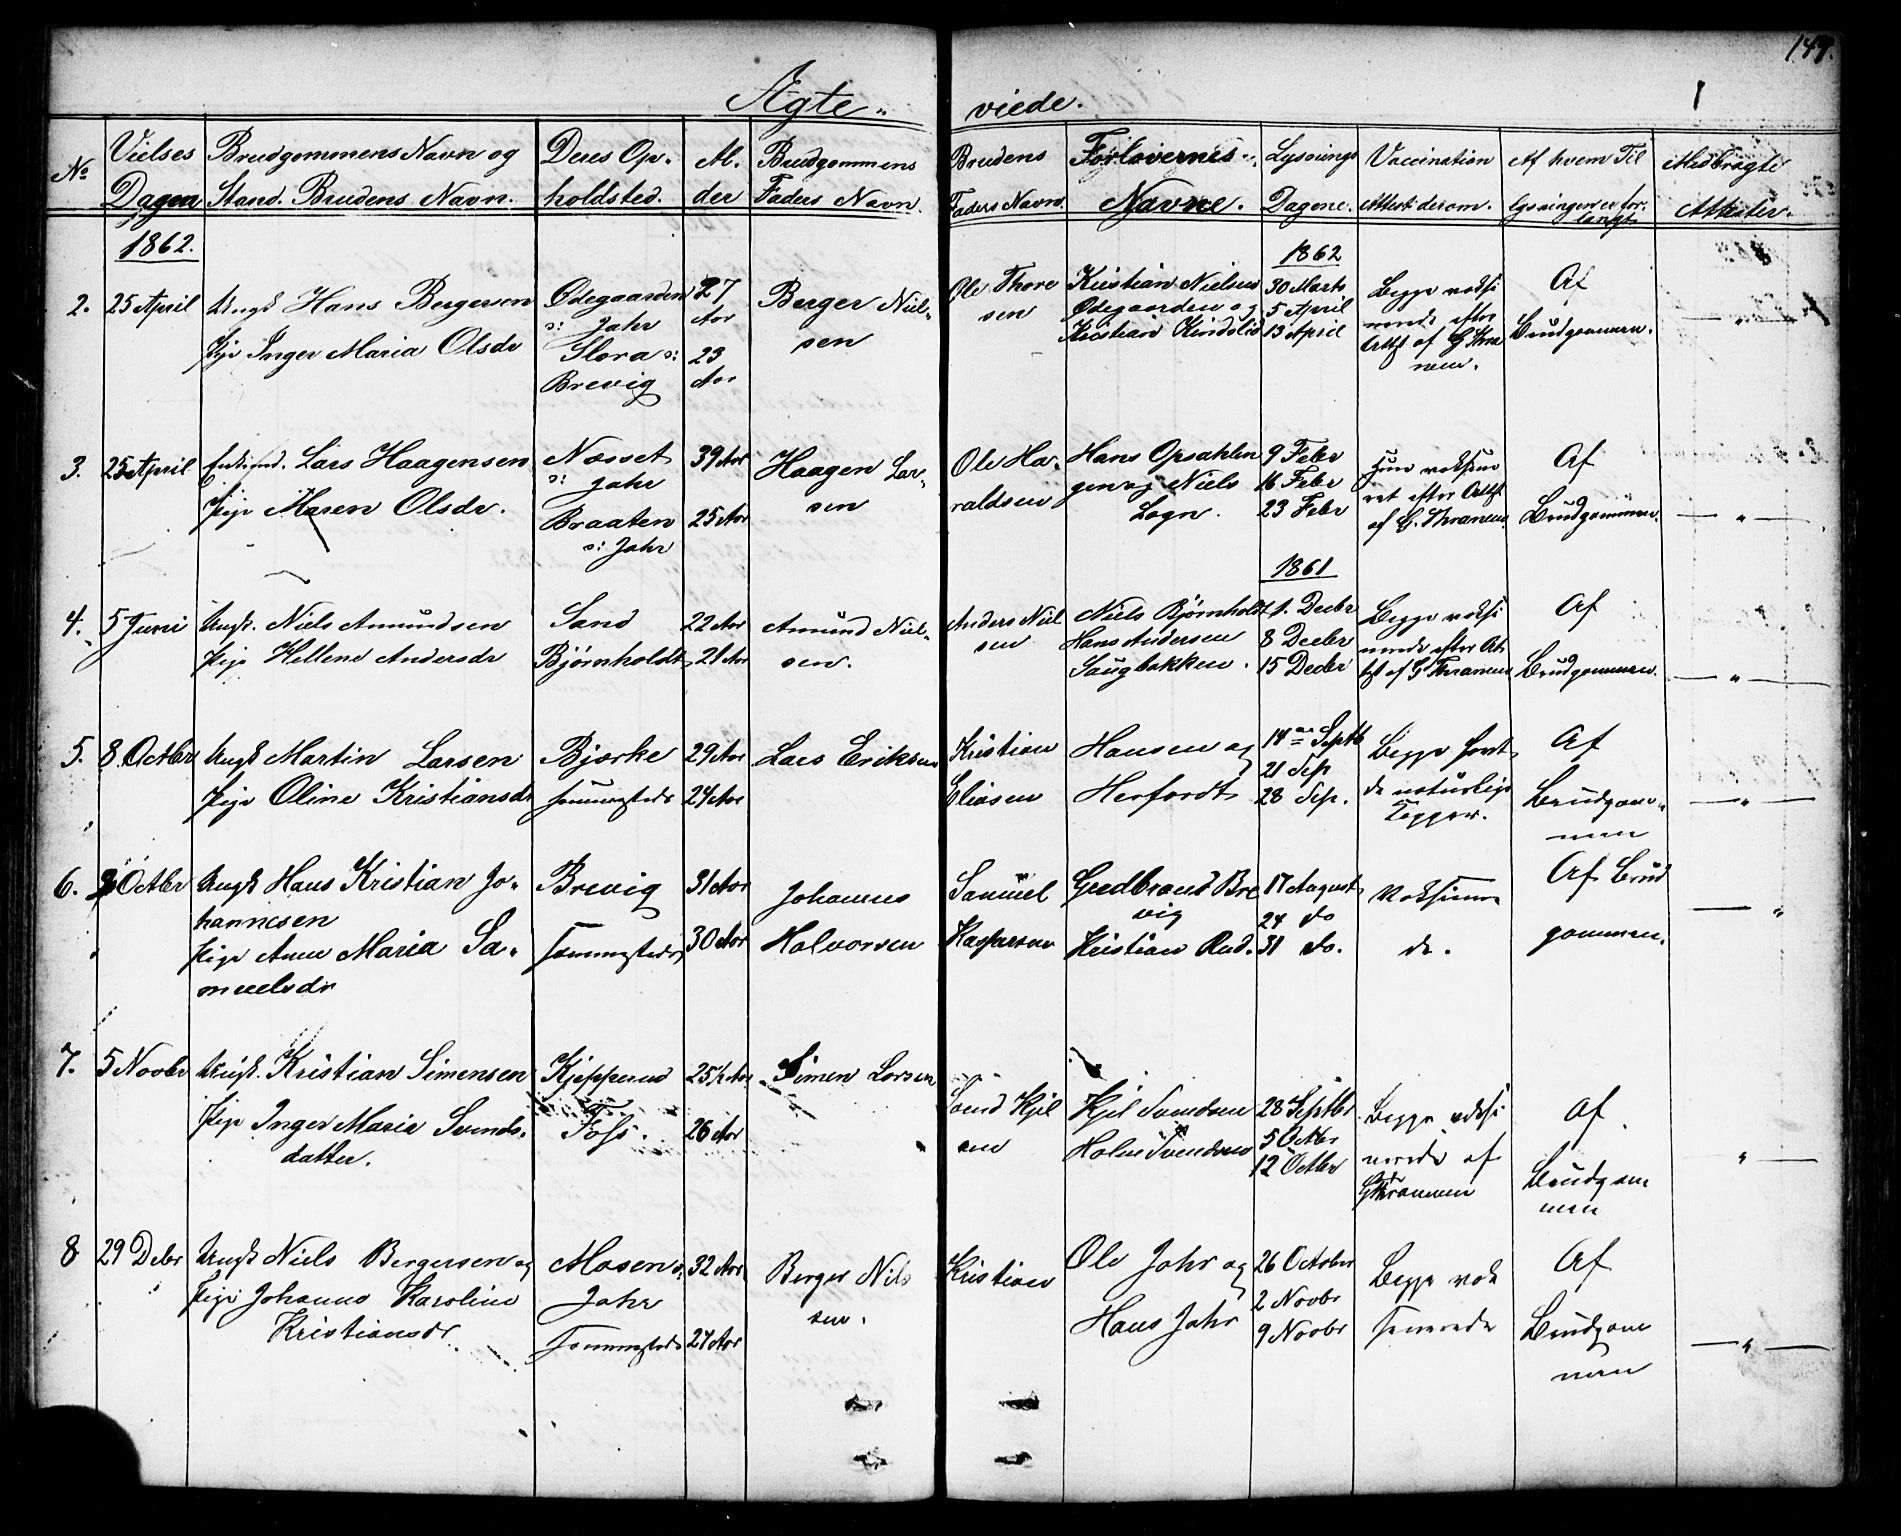 149.
1
Ægte-
viede.
No
Vielses Dagen
Brudgommens Navn og Stand. Brudens Navn.
Deres Opholdsted.
Alder
Brudgommens Faders Navn.
Brudens Faders Navn.
Forlovernes Navne.
Lysnings Dagene.
Vaccination Attest derom.
Af hvem Til lysningen er forlangt
Medbragte Attester.
1862.
1862
2. 25 April
Ungk Hans Bergersen
Pige Inger Maria Olsdr
Ødegaarden
s: Jahr
Slora s:
Brevig
27 Aar
23 Aar
Berger Niel-
sen
Ole Thore
sen
Kristian Nielsen
Ødegaarden og
Kristian Kindslid
30 Marts
5 April
13 April
Begge vaksi
nerede efter
Attst af G Thra
nem.
Af
Brudgommen.
— " —
3. 25 April
Enkemd. Lars Haagensen
Pige Maren Olsdr.
Næsset
s: Jahr
Braaten
s: Jahr
39 Aar
25 Aar
Haagen Lar-
sen
Ole Ha-
raldsen
Hans Opsahlen
gen og Niels
Logn.
9 Febr
16 Febr
23 Febr
Hun vaksine
ret efter Attst
af G. Thranem
Af
Brudgommen.
— " —
1861
4. 5 Juni
Ungk. Niels Amundsen
Pige Hellene Andersdr
Sand
Bjørnholdt
22 Aar
21 Aar
Amund Niel-
sen.
Anders Niel
sen
Niels Bjørnholdt
Hans Andersen
Saugbakken.
1. Decbr
8 Decbr
15 Decbr
Begge vaksi
nerede efter At
test af G Thranem
Af
Brudgommen.
— " —
5. 8 Octbr
Ungk Martin Larsen
Pige Oline Kristiansdr
Bjørke
sammesteds
29 Aar
24 Aar
Lars Eriksen
Kristian
Eliasen
Hansen og
Herfordt
14 Septb
21 Sep
28 Sep.
Begge havt
de naturlige
Kopper.
Af
Brudgom-
men
— " —
6. Octbr
Ungk Hans Kristian Jo-
hannesen
Pige Anne Maria Sa-
muelsdr
Brevig
Sammesteds
31 Aar
30 Aar
Johannes
Halvorsen
Samuel
Kaspersen
Gudbrand Bre
vig
Kristian Rud.
17 August
24 do
31 do.
Vaksinere
de.
Af Brud
gommen.
— "
7. 5 Novbr
Ungk. Kristian Simensen
Pige Inger Maria Svends-
datter.
Kjepperud
Foss.
25½ Aar
26 Aar
Simen Larsen
Svend Kjel
sen
Kjel Svendsen
Holm Svendsen
28 Septbr
5 Octbr
12 Octbr
Begge vaksi
nerede af
G Thranem
Af
Brudgom
men
" —
8 29 Debr
Ungk Niels Bergersen og
Pige Johanne Karoline
Kristiansdr
Mosen s:
Jahr
Sammesteds
32 Aar
27 Aar
Berger Nils
sen.
Kristian
Ole Jahr og
Hans Jahr
26 October
2 Novbr
9 Novbr
Begge vak
sinerede
Af
Brudgom
men
— " —